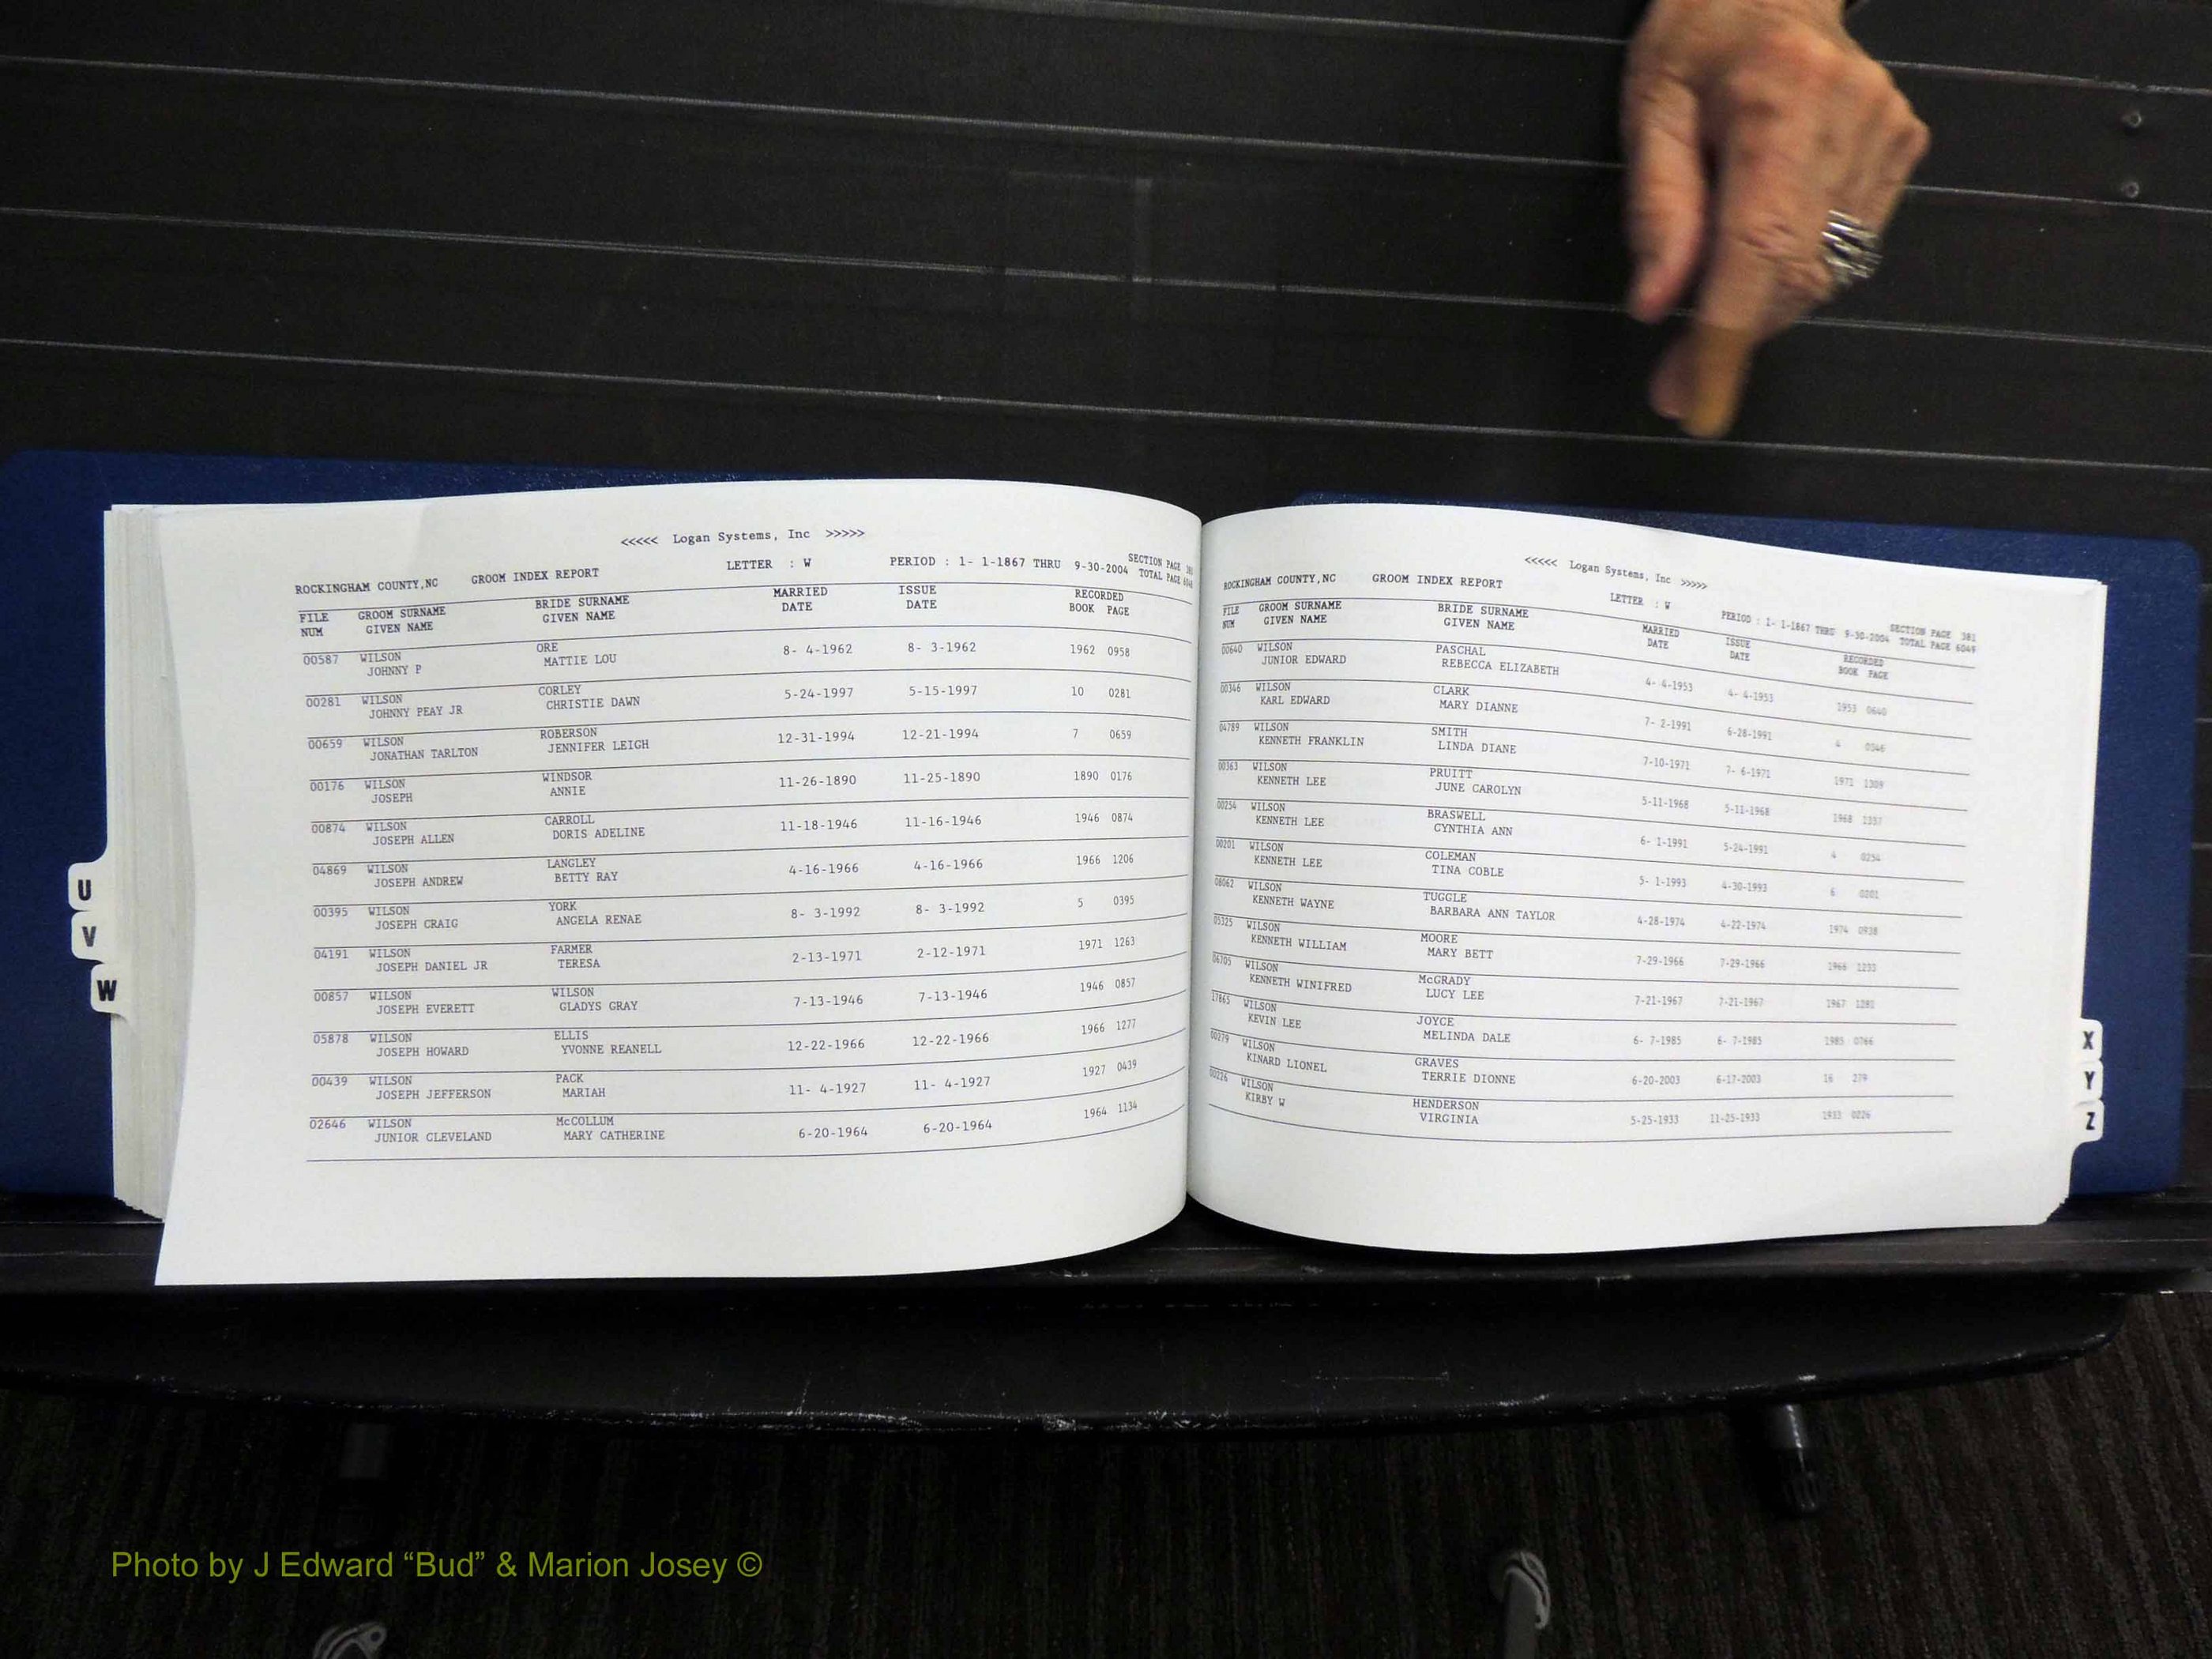 <<<<< Logan Systems, Inc >>>>>
ROCKINGHAM COUNTY,NC GROOM INDEX REPORT LETTER : W PERIOD : 1- 1-1867 THRU 9-30-2004 SECTION PAGE
TOTAL PAGE
FILE GROOM SURNAME BRIDE SURNAME MARRIED ISSUE RECORDED
NUM GIVEN NAME GIVEN NAME DATE DATE BOOK PAGE
00587 WILSON ORE 8- 4-1962 8- 3-1962 1962 0958
JOHNNY P MATTIE LOU
00281 WILSON CORLEY 5-24-1997 5-15-1997 10 0281
JOHNNY PEAY JR CHRISTIE DAWN
00659 WILSON ROBERSON 12-31-1994 12-21-1994 7 0659
JONATHAN TARLTON JENNIFER LEIGH
00176 WILSON WINDSOR 11-26-1890 11-25-1890 1890 0176
JOSEPH ANNIE
00874 WILSON CARROLL 11-18-1946 11-16-1946 1946 0874
JOSEPH ALLEN DORIS ADELINE
04869 WILSON LANGLEY 4-16-1966 4-16-1966 1966 1206
JOSEPH ANDREW BETTY RAY
00395 WILSON YORK 8- 3-1992 8- 3-1992 5 0395
JOSEPH CRAIG ANGELA RENAE
04191 WILSON FARMER 2-13-1971 2-12-1971 1971 1263
JOSEPH DANIEL JR TERESA
00857 WILSON WILSON 7-13-1946 7-13-1946 1946 0857
JOSEPH EVERETT GLADYS GRAY
05878 WILSON ELLIS 12-22-1966 12-22-1966 1966 1277
JOSEPH HOWARD YVONNE REANELL
00439 WILSON PACK 11- 4-1927 11- 4-1927 1927 0439
JOSEPH JEFFERSON MARIAH
02646 WILSON McCOLLUM 6-20-1964 6-20-1964 1964 1134
JUNIOR CLEVELAND MARY CATHERINE
U
V
W
<<<<< Logan Systems, Inc >>>>>
ROCKINGHAM COUNTY,NC GROOM INDEX REPORT LETTER : W PERIOD : 1- 1-1867 THRU 9-30-2004 SECTION PAGE 381
TOTAL PAGE 6049
FILE GROOM SURNAME BRIDE SURNAME MARRIED ISSUE RECORDED
NUM GIVEN NAME GIVEN NAME DATE DATE BOOK PAGE
00640 WILSON PASCHAL 4- 4-1953 4- 4-1953 1953 0640
JUNIOR EDWARD REBECCA ELIZABETH
00346 WILSON CLARK 7- 2-1991 6-28-1991 4 0346
KARL EDWARD MARY DIANNE
04789 WILSON SMITH 7-10-1971 7- 6-1971 1971 1309
KENNETH FRANKLIN LINDA DIANE
00363 WILSON PRUITT 5-11-1968 5-11-1968 1968
KENNETH LEE JUNE CAROLYN
00254 WILSON BRASWELL 6- 1-1991 5-24-1991 4 0254
KENNETH LEE CYNTHIA ANN
00201 WILSON COLEMAN 5- 1-1993 4-30-1993 6 0201
KENNETH LEE TINA COBLE
08062 WILSON TUGGLE 4-28-1974 4-22-1974 1974 0938
KENNETH WAYNE BARBARA ANN TAYLOR
05325 WILSON MOORE 7-29-1966 7-29-1966 1966 1233
KENNETH WILLIAM MARY BETT
06705 WILSON McGRADY 7-21-1967 7-21-1967 1967
KENNETH WINIFRED LUCY LEE
17865 WILSON JOYCE 6- 7-1985 6- 7-1985 1985 0766
KEVIN LEE MELINDA DALE
00279 WILSON GRAVES 6-20-2003 6-17-2003 16 279
KINARD LIONEL TERRIE DIONNE
00226 WILSON HENDERSON 5-25-1933 11-25-1933 1933 0226
KIRBY W VIRGINIA
X
Y
Z
Photo by J Edward “Bud” & Marion Josey ©